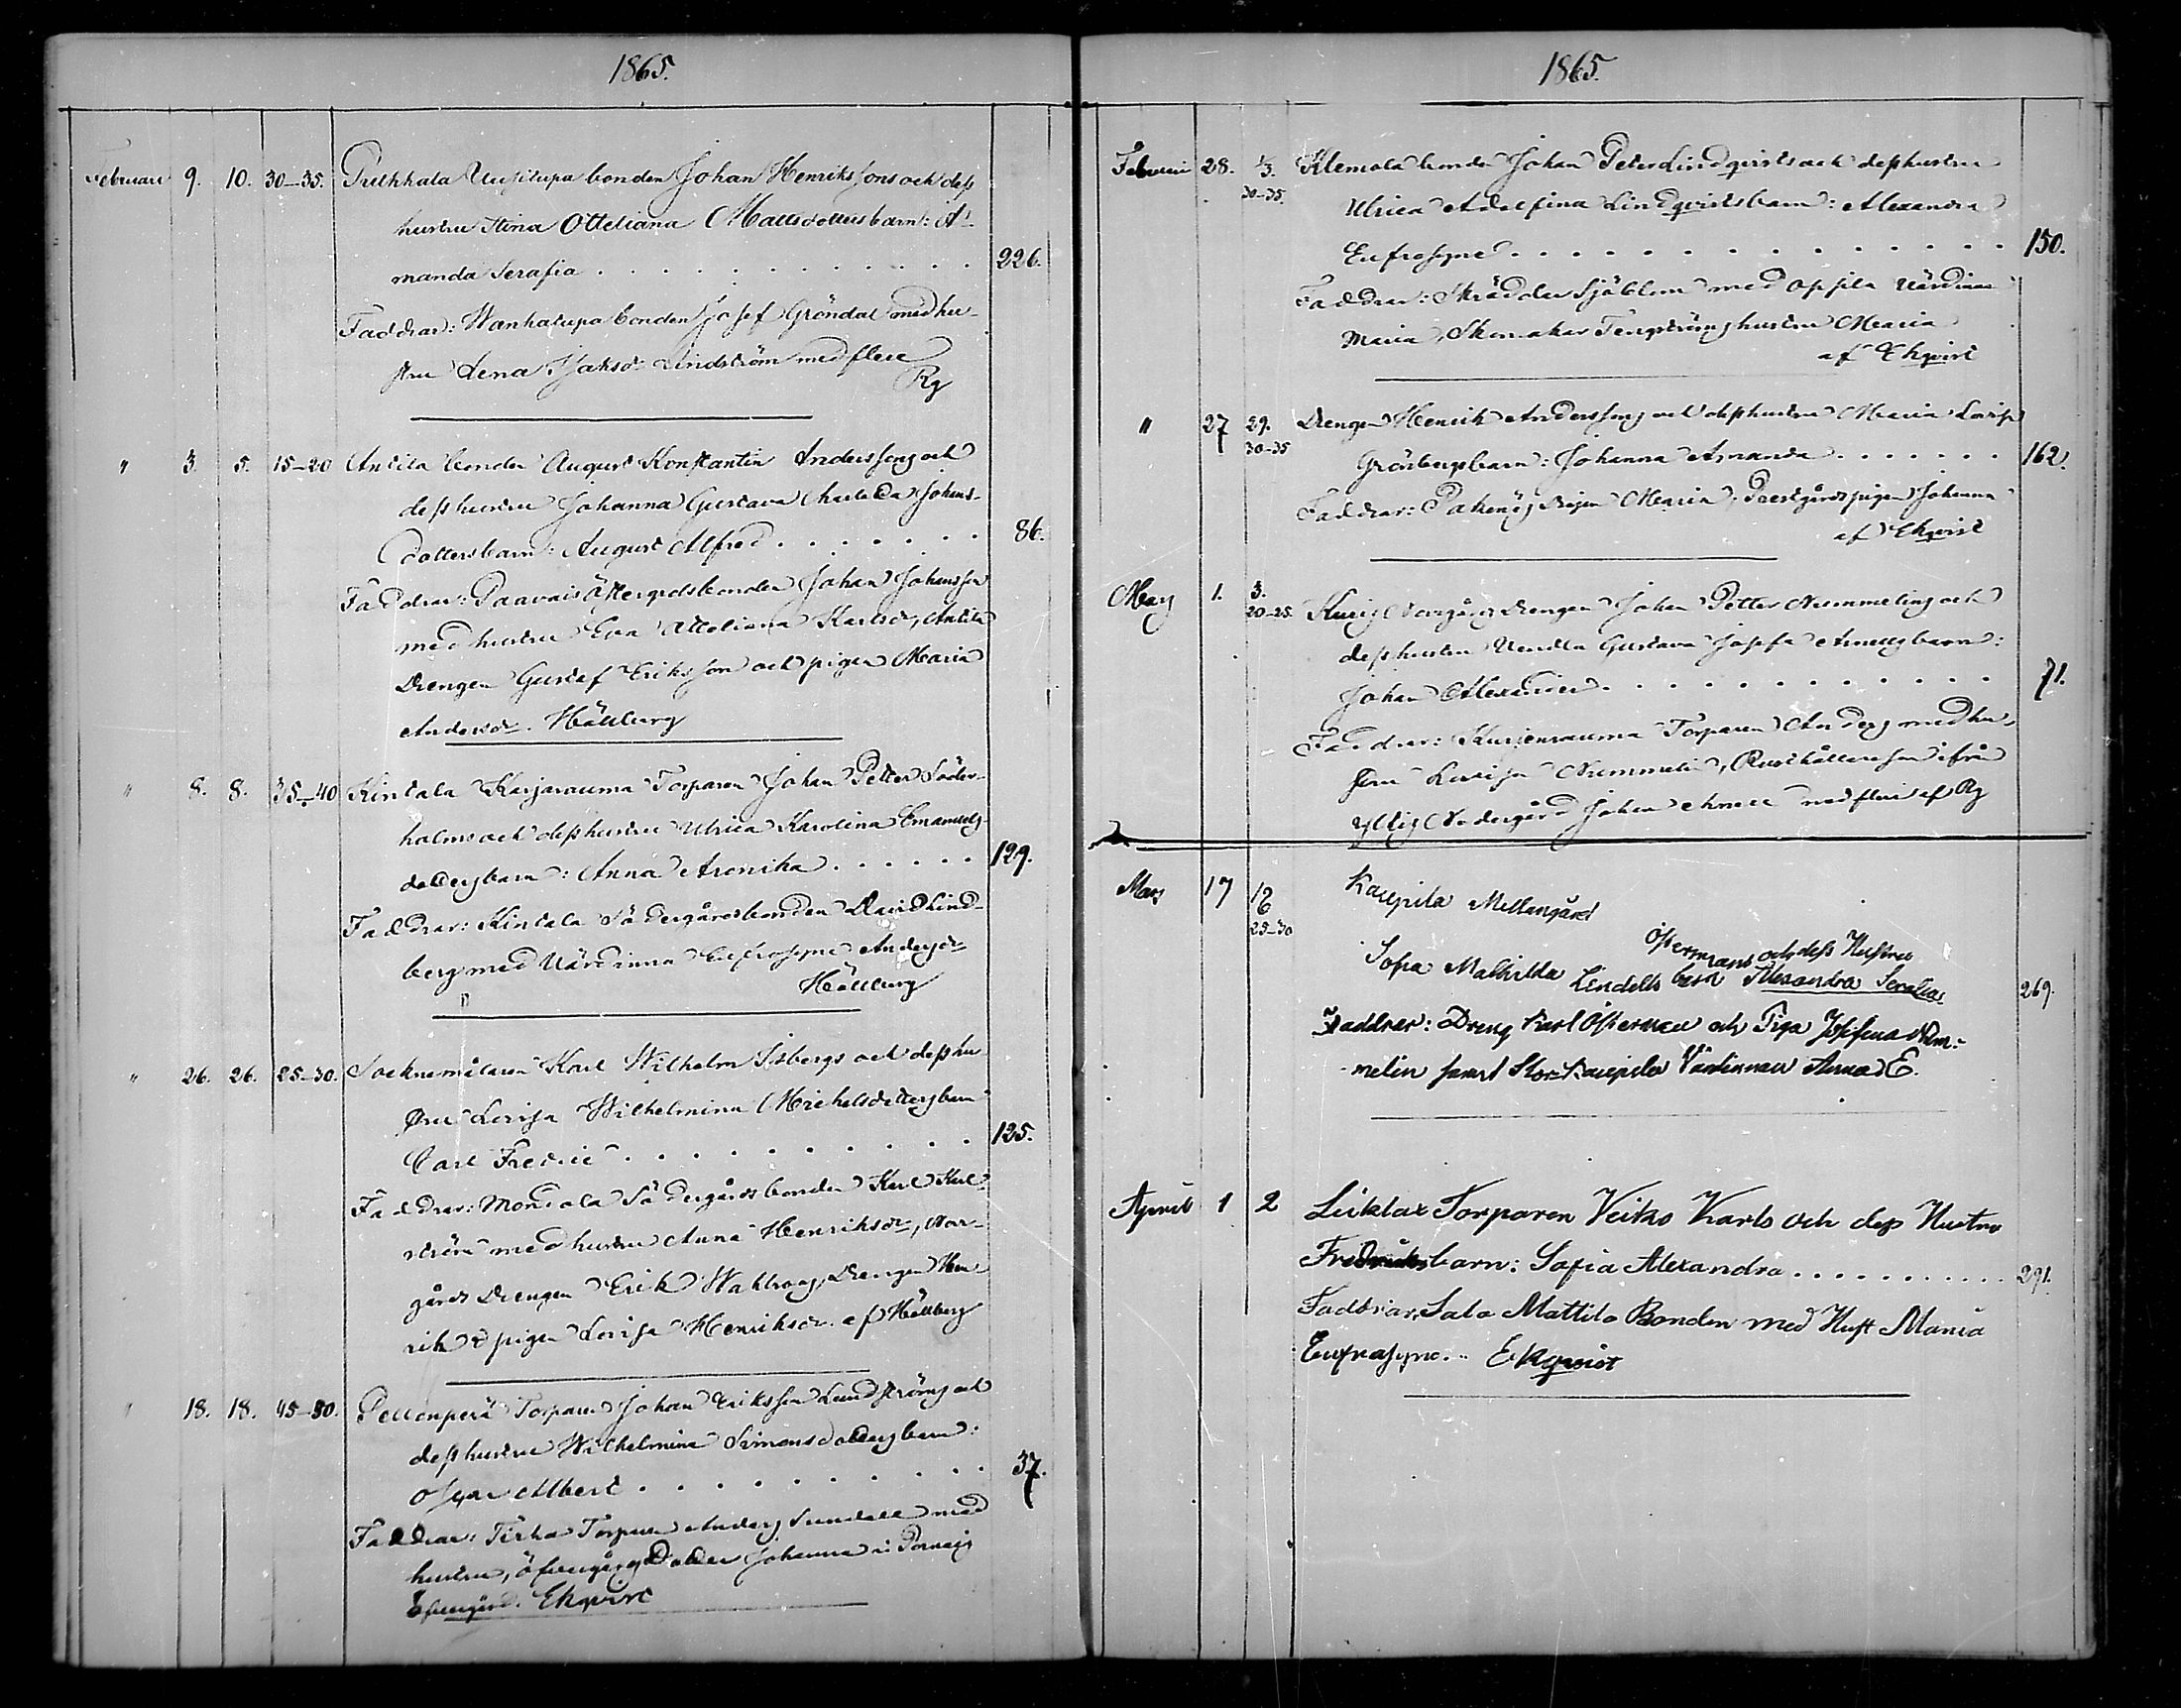 1865.
Februari 9. 10. 30-35. Pukkala Uusitupa bonden Johan Henrikssons och dess
hustru Stina Otteliana Mattsdotters barn: A-
manda Serafia . . . . . . . . . . . 226.
Faddrar: Wanhatupa bonden Josef Gröndal med hu-
stru Lena Isaksdr Lindström med flere
Rg
" 3. 5. 15-20 Anttila bonden August Konstantin Anderssons och
dess hustru Johanna Gustava Matilda Johans-
dotters barn: August Alfred . . . . . . . 86.
Faddrar: Paavais bonden Johan Johansson
med hustru Eva Otteliana Karlsdr, Anttila
Drengen Gustaf Eriksson och pigan Maria
Andersdr. Hällberg
" 8. 8. 35-40 Kintala Karjarauma Torparen Johan Petter Söder-
holms och dess hustru Ulrica Karolina Emanuels-
dotters barn: Anna Aronika . . . . . . 129.
Faddrar: Kintala Södergårds bonden David Lind-
berg med Värdinna Eufrosyne Andersdr
Hällberg
" 26. 26. 25-30. Socknemålaren Karl Wilhelm Isbergs och dess hu-
stru Lovisa Wilhelmina Michelsdotters barn
Carl Fredric . . . . . . . . . . 125.
Faddrar: Mondola Södergårds bonden Karl Karl-
ström med hustru Anna Henriksdr, Nor-
gårds Drengen Erik Wahlroos, Drengen Hen-
rik & pigan Lovisa Henriksdr. af Hällberg
" 18. 18. 45-50. Pellonperä Torparen Johan Eriksson Lundströms och
dess hustru Wilhelmina Simonsdotters barn:
Oscar Albert . . . . . . . . . . 37.
Faddrar: Torparen Anders Sundell med
hustru, Öfvergårds Dotter Johanna i
Öfvergård. Ekqvist
1865.
Februari 28. 1/3. 30-35. Klemola bonden Johan Peter Lindqvists och dess hustru
Ulrica Adolfina Lindqvists barn: Alexandra
Eufrosyne . . . . . . . . . . . . . 150.
Faddrar: Skräddar Sjöblom med Värdinna
Maria, Skomakar Tengströms hustru Maria
af Ekqvist
" 27 29. 30-35 Drengen Henrik Anderssons och dess hustru Maria Lovisa
Grönbergs barn: Johanna Amanda . . . . . . . 162.
Faddrar: pigan Maria, Prestgårds pigan Johanna
af Ekqvist
Mars 1. 3. 20-25. Norrgårds Drengen Johan Petter Nummelins och
dess hustru Vendla Gustava Josefa barn:
Johan Alexander . . . . . . . . . . . . 71.
Faddrar: Kurjenrauma Torparen Anders med hu-
stru Lovisa Nummelin, Rusthållare son ifrån
Johan med flere af Rg
Mars 17 18 25-30 Kaupila Mellangård
Östermans och dess Hustru
Sofia Mathilda Lindells barn Alexandra Serafia 269.
Faddrar: Dreng Karl Österman och Piga Josefina Num-
melin samt Stor-Kaupila Värdinnan Anna E.
April 1 2 Torparen Veikko Karls och dess Hustru
Fredriks barn: Sofia Alexandra . . . . . . . . . . . 291.
Faddrar, Salo Mattila Bonden med Hust Maria
Eufrosyne. Ekqvist